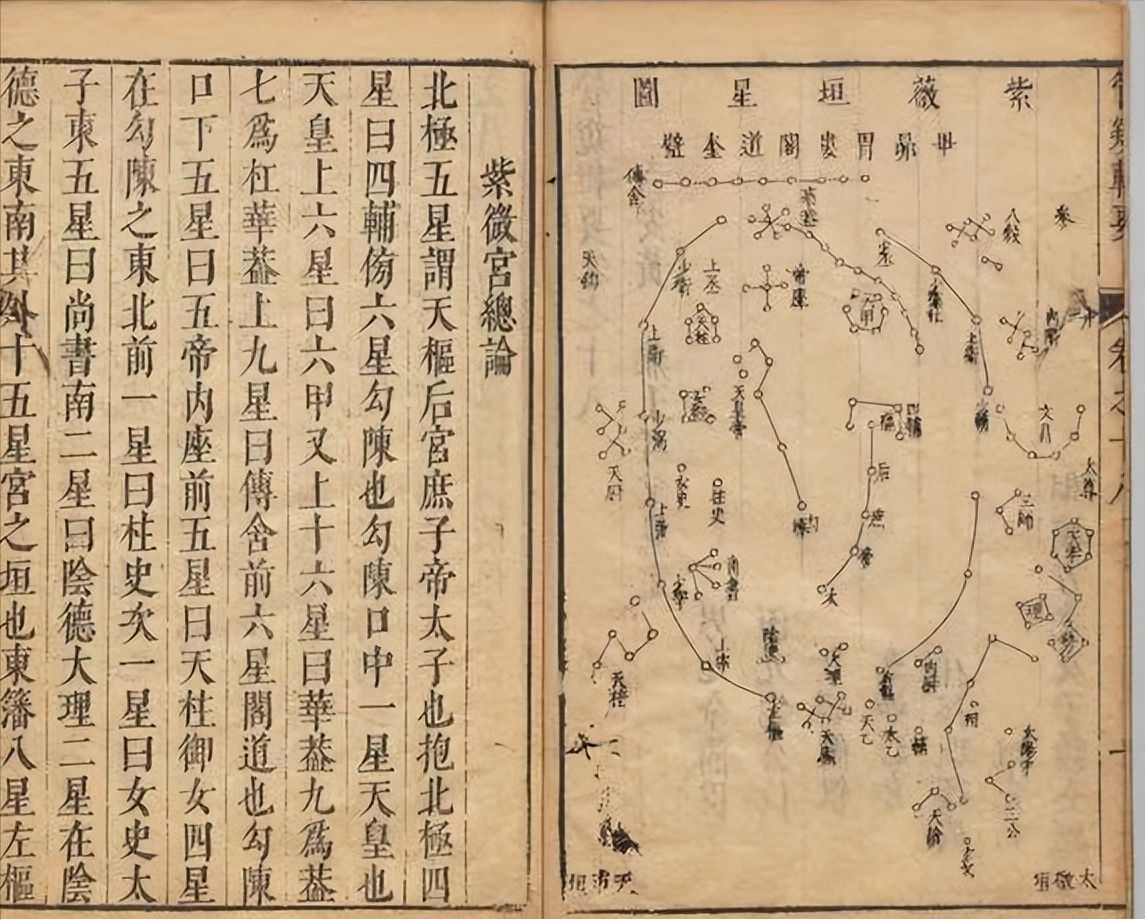 紫薇垣星圖
畢昴胃婁閣道奎壁
傳舍
八穀
天鈎
少衛
上丞
帝座
六甲
少丞
上衛
天柱
上衛
天皇帝
四輔
后
庶
帝
太
勾陳
文昌
太尊
三師
天牢
理
少弼
女史
柱史
天厨
尚書
上宰
陰德
大理
天棓
左樞
右樞
内厨
天床
天乙
太乙
相
太陽守
三公
天鎗
玄戈
天市垣
太微垣
紫微宮總論
北極五星謂天樞后宮庶子帝太子也抱北極四
星曰四輔傍六星勾陳也勾陳口中一星天皇也
天皇上六星曰六甲又上十六星曰華葢九為葢
七為杠華葢上九星曰傳舍前六星閣道也勾陳
口下五星曰五帝内座前五星曰天柱御女四星
在勾陳之東北前一星曰柱史次一星曰女史太
子東五星曰尚書南二星曰陰德大理二星在陰
德之東南其外十五星宮之垣也東籓八星左樞